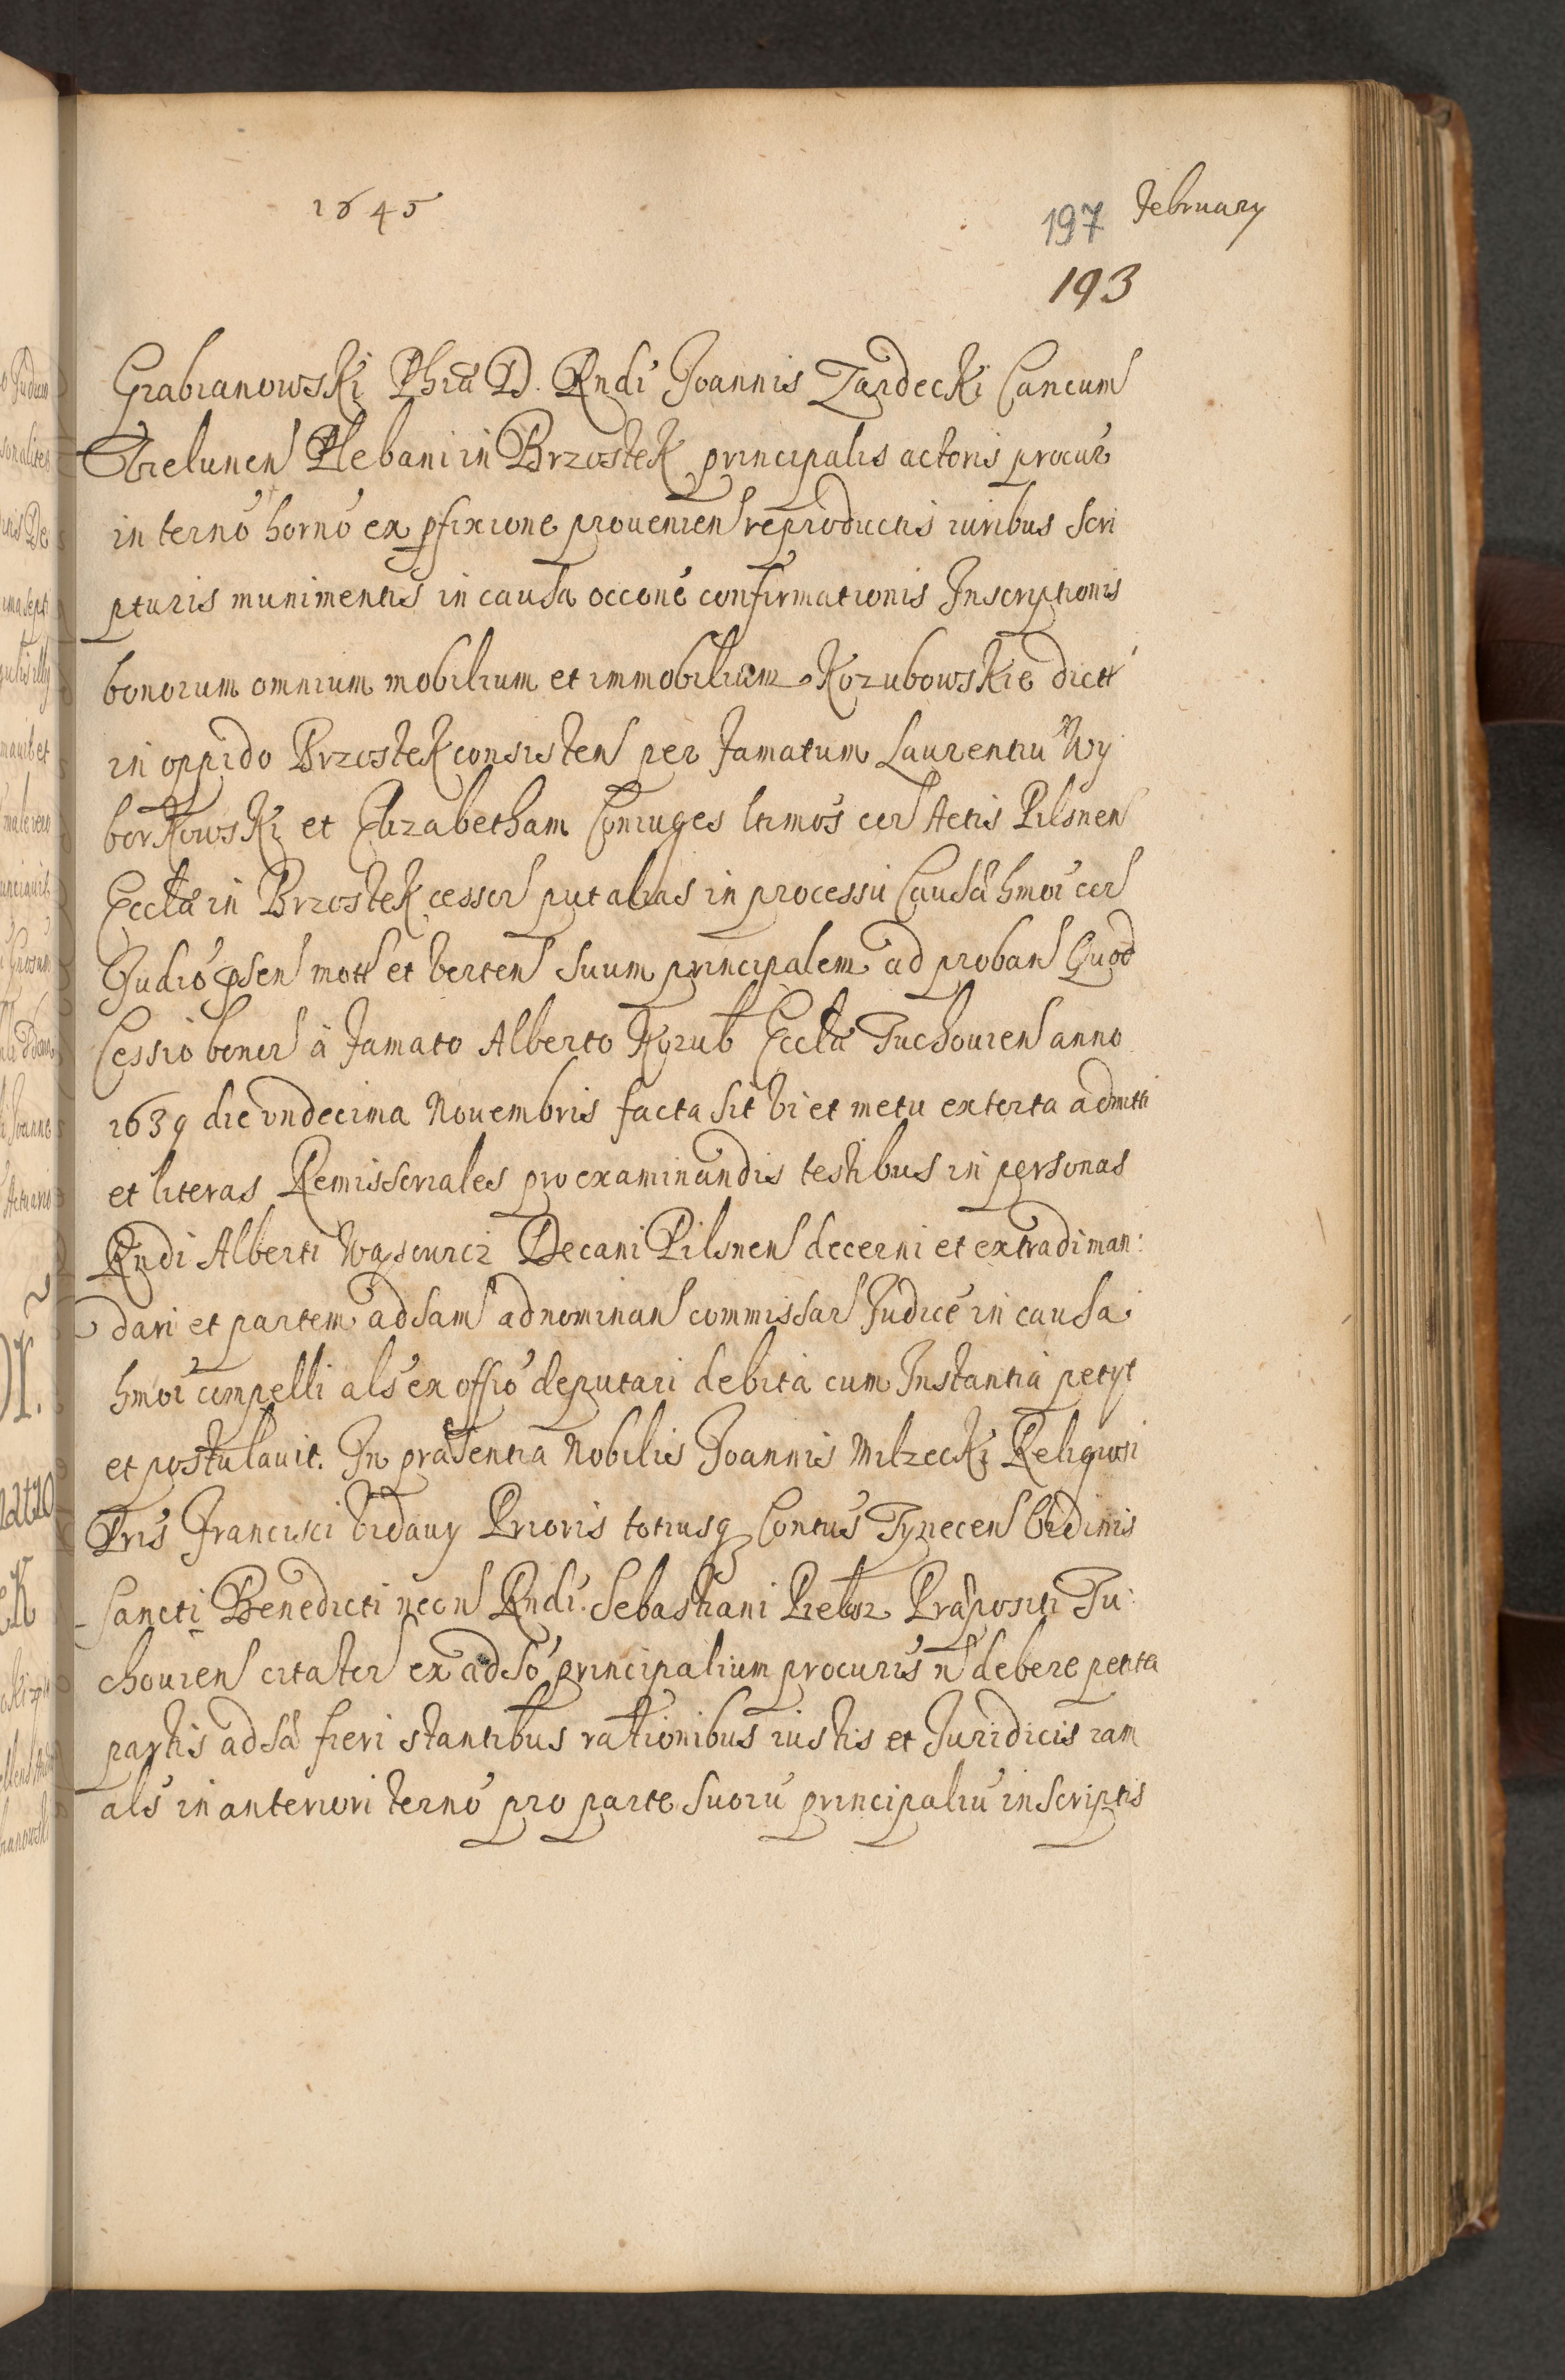 1645
197 February
193
Grabianowski Phiæ D. Rndi Joannis Zardecki Cancum
Vielunen Plebani in Brzostek principalis actoris procur
in terno horno ex pfixione prouenien reproductis iuribus scri
pturis munimentis in causa occone confirmationis Inscriptionis
bonorum omnium mobilium et immobilium Kozubowskie dictt
in oppido Brzostek consisten per famatum Laurentiu Wy
borkowski et Elizabetham Coniuges ltimos cor Actis Pilsnen
Eccla in Brzostek cessor put alias in processu Causæ hmoi cor
Judio psen mott et verten suum principalem ad proban Quod
Cessio bonor à famato Alberto Kozub Eccla Tuchouien anno
1639 die vndecima Nouembris facta sit vi et metu extorta admitti
et literas Remissoriales pro examinandis testibus in personas
Rndi Alberti Wasowicz Decani Pilsnen decerni et extradi man:
dari et partem adsam ad nominan commissar Judice in causa
hmoi compelli als ex offio deputari debita cum Instantia petyt
et postulauit. In præsentia Nobilis Joannis Milzecki Religiosi
Pris Francisci Vidauy Prioris totiusq Contus Tynecen Ordinis
Sancti Benedicti necn Rndi Sebastiani Pielosz Præpositi Tu:
chouien citator ex adso principalium procuris n debere petita
partis adsæ fieri stantibus rationibus iustis et Juridicis iam
als in anteriori terno pro parte suoru principaliu in scriptis